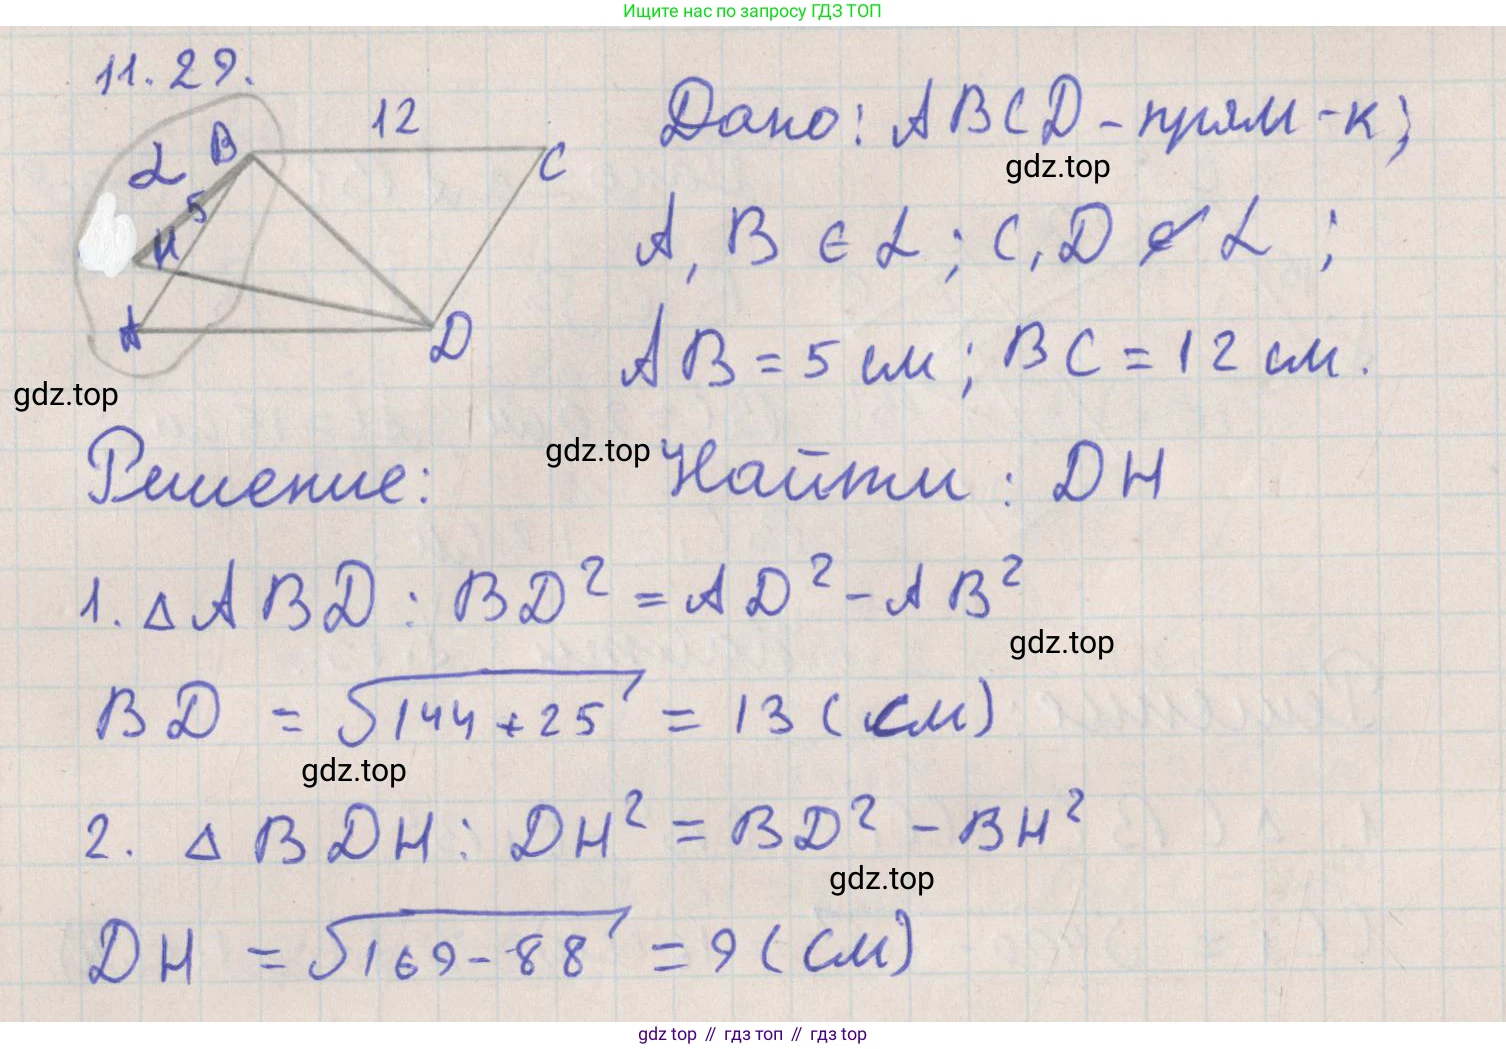 Ищите нас по запросу ГДЗ ТОП
11.29.
12
B
C
α
5
H
A
D
Дано: ABCD - прям-к;
gdz.top
A, B ∈ α; C, D ∉ α;
AB = 5 см; BC = 12 см.
gdz.top
gdz.top
Решение:
Найти: DH
1. △ABD: BD² = AD² - AB²
gdz.top
BD = √144+25 = 13 (см)
gdz.top
2. △BDH: DH² = BD² - BH²
gdz.top
DH = √169-88 = 9 (см)
gdz top // гдз топ // гдз top